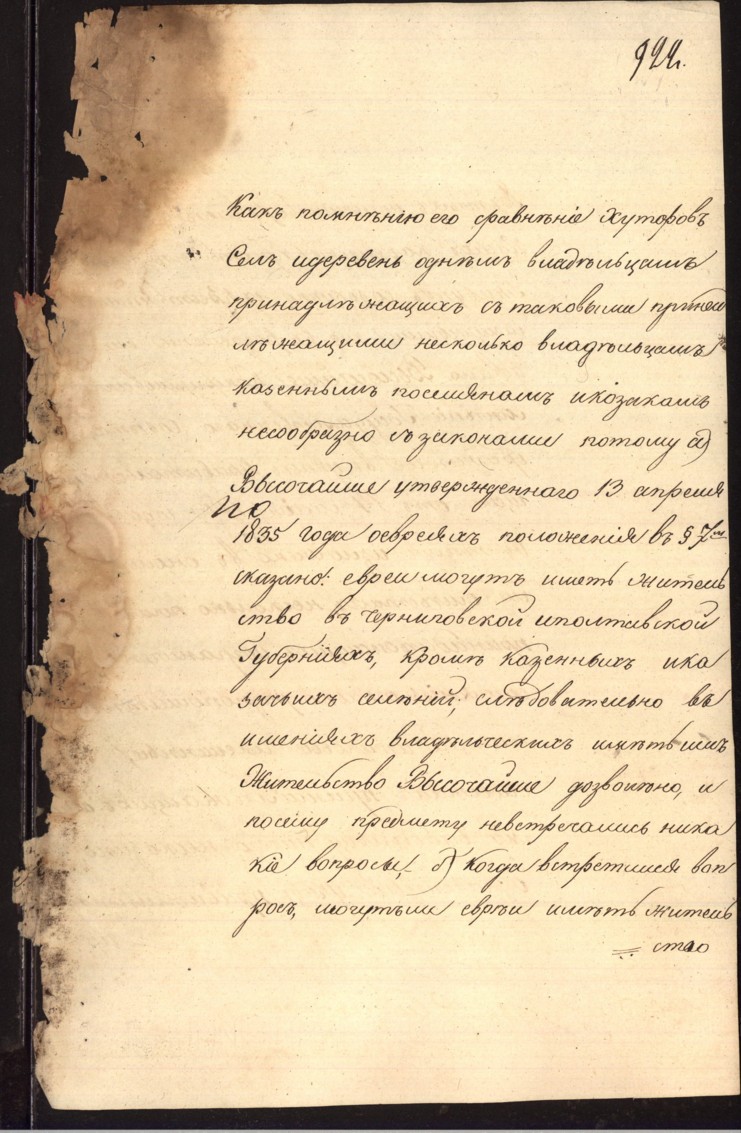 922.
Какъ помнѣнію его сравнѣніе Хуторовъ
Селъ идеревень однѣмъ владѣльцамъ
принадлѣжащихъ съ таковыми принад
лѣжащими несколько владѣльцамъ
казеннымъ поселянамъ икозакамъ
несообразно съ законами потому а)
Высочайше утвержденнаго 13 апреля
по
1835 года оевреяхъ положенія въ § 7
сказано: евреи могутъ иметь житель
ство въ черниговской иполтавской
Губерніяхъ, кромѣ казенныхъ ика
зачьихъ селѣній; слѣдовательно въ
имѣніяхъ владѣльческихъ имѣть имъ
Жительство Высочайше дозволѣно, и
посему предмету невстречались ника
кіе вопросы, б) Когда встретился воп
росъ, могутъли евреи имѣть житель
ство